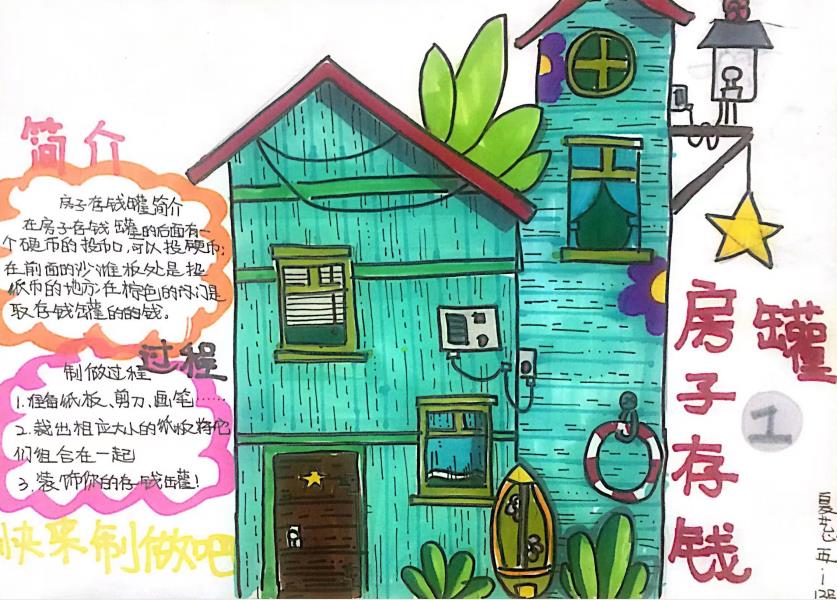 简介
房子存钱罐简介
在房子存钱罐的后面有一
个硬币的投币口,可以投硬币;
在前面的沙滩板处是投
纸币的地方在棕色的门是
取存钱罐的的钱。
过程
制做过程
1.准备纸板、剪刀、画笔……
2.裁出相应大小的纸板将它
们组合在一起
3.装饰你的存钱罐!
快来制做吧
房子存钱
罐
1
五.1